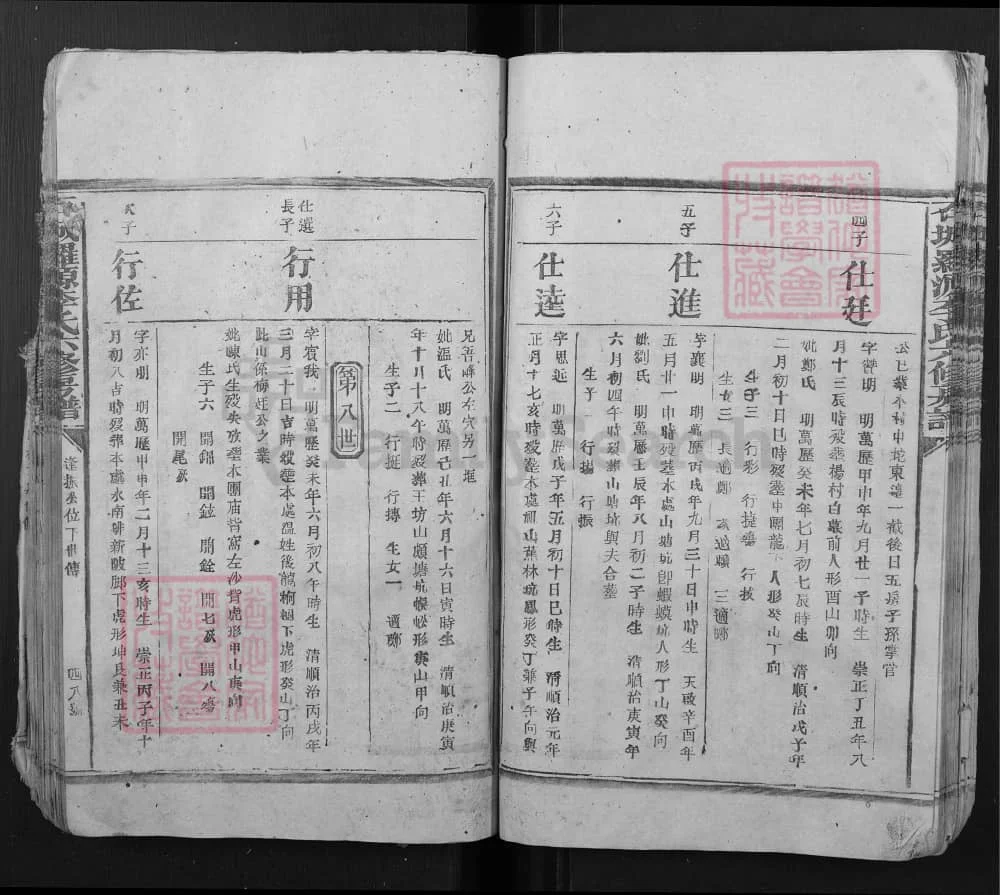 四子
仕廷
字贊明 明萬歷甲申年九月廿一子時生 崇正丁丑年八
月十三辰時歿葬楊村白墓前人形酉山卯向
妣鄭氏 明萬歷癸未年七月初七辰時生 清順治戊子年
二月初十日巳時歿葬中團龍下人形癸山丁向
生子三 行彩 行捷殤 行拔
生女三 長適鄭 三適鄭
五子
仕進
字襄明 明萬歷丙戌年九月三十日申時生 天啟辛酉年
五月廿一申時歿葬本處山塘坑卽蝦蟆坑人形丁山癸向
妣劉氏 明萬歷壬辰年八月初二子時生 清順治庚寅年
六月初四午時歿葬山塘坑與夫合墓
生子二 行揚 行振
六子
仕逵
字思逅 明萬歷戊子年五月初十日巳時生 清順治元年
正月十七亥時歿葬本處細山蕉林坑鳳形癸丁兼子午向與
兄善峰公左穴另一堆
妣溫氏 明萬歷己丑年六月十六日寅時生 清順治庚寅
年十一月十八午時歿葬王坊山頗塘坑蜈蚣形庚山甲向
生子二 行挺 行摶 生女一 適鄭
第八世
仕選
長子
行用
字賓我 明萬歷癸未年六月初八午時生 清順治丙戌年
三月二十日吉時歿葬本處溫姓後龍桐樹下虎形癸山丁向
此山係梅莊公之業
妣陳氏生歿失攷葬水團庙背窩左沙背虎形甲山庚向
生子六 開錦 開鉉 開銓 開七殀 開八殤
開尾殀
次子
行佐
字亦明 明萬歷甲申年二月十三亥時生 崇正丙子年十
月初八吉時歿葬本處水南排新陂腳下虎形坤艮兼丑未
逢振公位下世傳